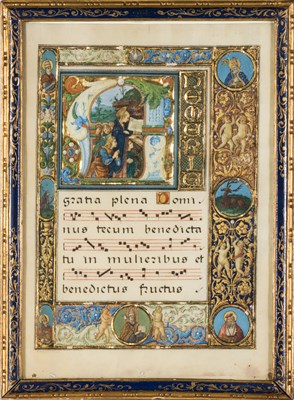 gratia plena Domi
nus tecum benedicta
tu in mulieribus et
benedictus fructus